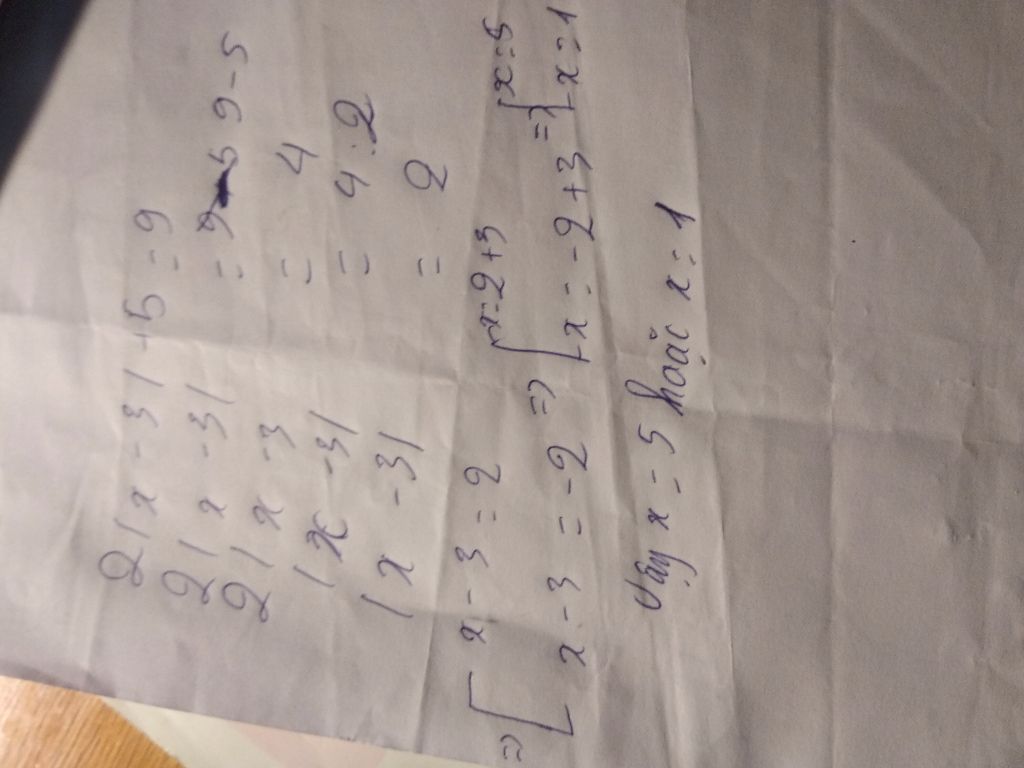 2|x - 3| + 5 = 9
2|x - 3| = 9 - 5
2|x - 3 = 4
|x - 3| = 4 : 2
|x - 3| = 2
=> [ x - 3 = 2 => [ x = 2 + 3 => [ x = 5
x - 3 = -2 x = -2 + 3 x = 1
Vậy x = 5 hoặc x = 1